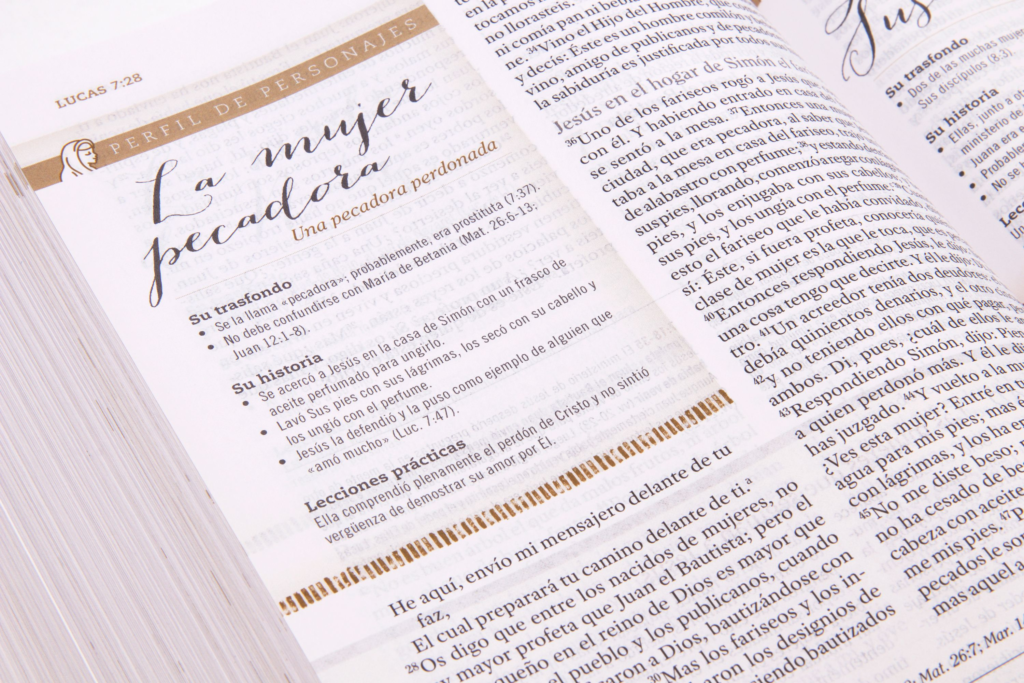 LUCAS 7:28
PERFIL DE PERSONAJES
La mujer
pecadora
Una pecadora perdonada
Su trasfondo
• Se la llama «pecadora»; probablemente, era prostituta (7:37).
• No debe confundirse con María de Betania (Mat. 26:6-13;
Juan 12:1-8).
Su historia
• Se acercó a Jesús en la casa de Simón con un frasco de
aceite perfumado para ungirlo.
• Lavó Sus pies con sus lágrimas, los secó con su cabello y
los ungió con el perfume.
• Jesús la defendió y la puso como ejemplo de alguien que
«amó mucho» (Luc. 7:47).
Lecciones prácticas
Ella comprendió plenamente el perdón de Cristo y no sintió
vergüenza de demostrar su amor por Él.
He aquí, envío mi mensajero delante de tu
faz,
El cual preparará tu camino delante de ti.a
28Os digo que entre los nacidos de mujeres, no
mayor profeta que Juan el Bautista; pero el
en el reino de Dios es mayor que
pueblo y los publicanos, cuando
a Dios, bautizándose con
30Mas los fariseos y los in-
los designios de
bautizados
en la
tocamos
no llorasteis.
ni comía pan ni
34Vino el Hijo del Hombre, que
y decís: Éste es un hombre comilón
vino, amigo de publicanos y de
la sabiduría es justificada por todos
Jesús en el hogar de Simón el
36Uno de los fariseos rogó a Jesús que
con él. Y habiendo entrado en casa
se sentó a la mesa. 37Entonces una
ciudad, que era pecadora, al saber
taba a la mesa en casa del fariseo,
de alabastro con perfume; 38y estando
sus pies, llorando, comenzó a regar con
pies, y los enjugaba con sus cabellos
sus pies, y los ungía con el perfume.
esto el fariseo que le había convidado
sí: Éste, si fuera profeta, conocería
clase de mujer es la que le toca, que
40Entonces respondiendo Jesús, le
una cosa tengo que decirte. Y él le dijo
tro. 41Un acreedor tenía dos deudores
debía quinientos denarios, y el otro
42y no teniendo ellos con qué pagar,
ambos. Di, pues, ¿cuál de ellos le
43Respondiendo Simón, dijo:
a quien perdonó más. Y él le
has juzgado. 44Y vuelto a la
¿Ves esta mujer? Entré en tu
agua para mis pies; mas
con lágrimas, y los ha
45No me diste beso;
no ha cesado de
cabeza con aceite
me mis pies. 47
pecados le
mas aquel a
Mat. 26:7; Mar.
Su trasfondo
• Dos de las muchas
Sus discípulos (8:3).
Su historia
• Ellas, junto a
ministerio de
• Juana era
• Probable
• No se